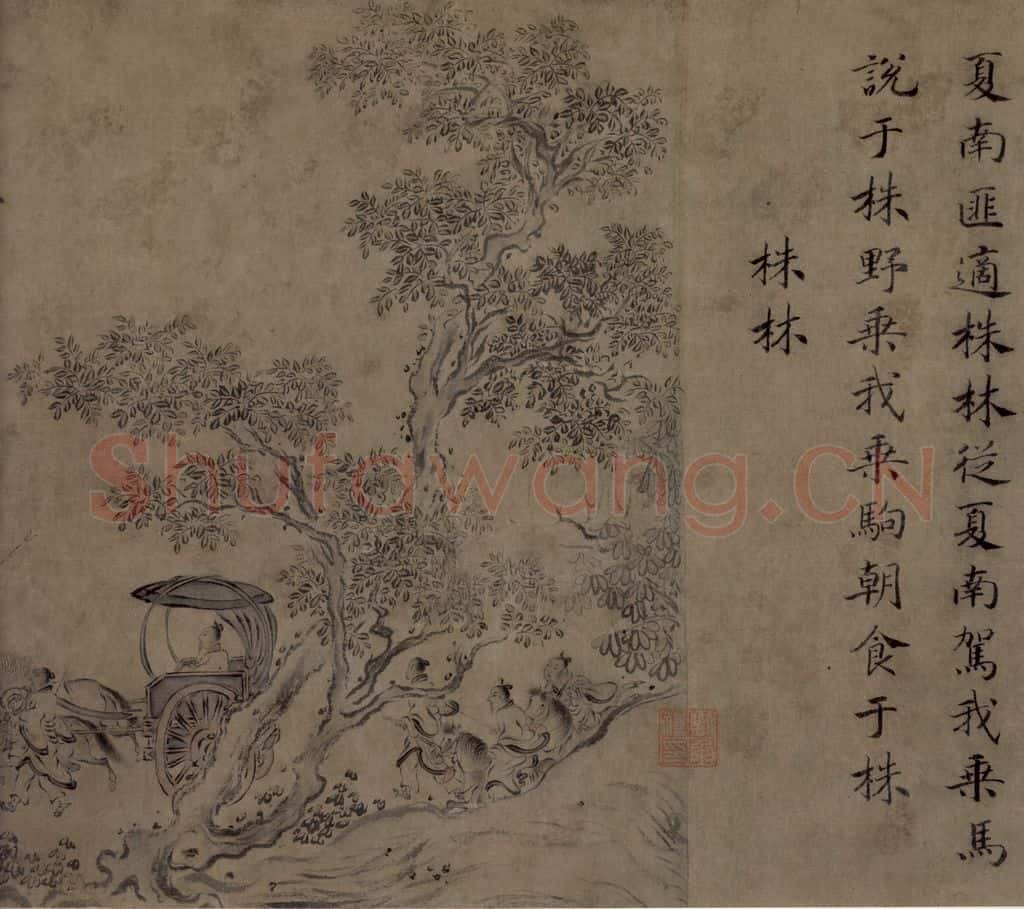 夏南匪適株林從夏南駕我乗馬
說于株野乗我乗駒朝食于株
株林
Shufawang.CN